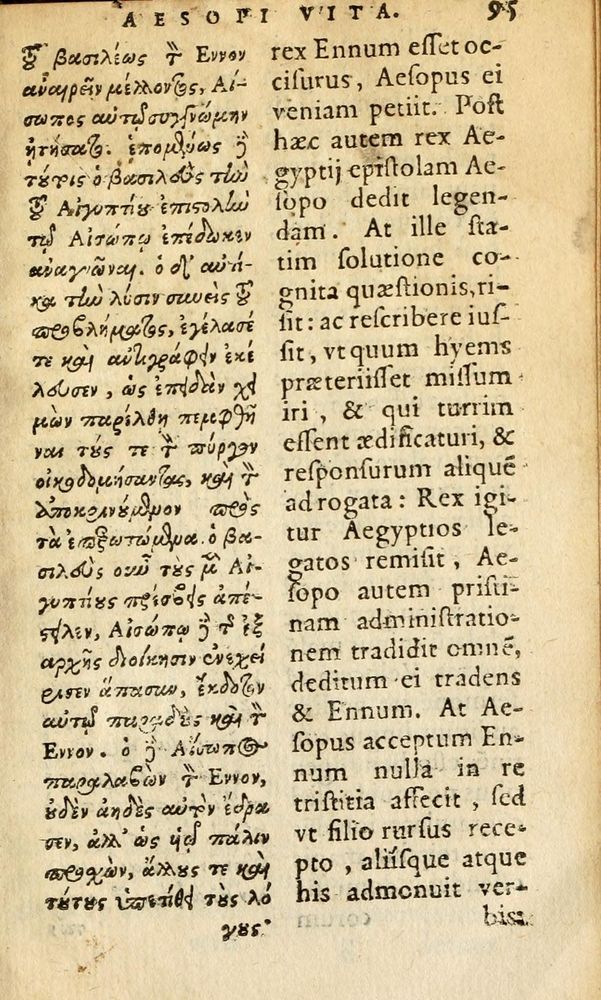 AESOPI VITA. 95
τοῦ βασιλέως τὸν Εννον
ἀναιρεῖν μέλλοντος, Αἴ-
σωπος αὐτῷ συγγνώμην
ᾐτήσατο. ἑπομένως δὲ
τούτοις ὁ βασιλεὺς τὴν
τοῦ Αἰγυπτίου ἐπιστολὴν
τῷ Αἰσώπῳ ἐπέδωκεν
ἀναγνῶναι. ὁ δ' αὐτί-
κα τὴν λύσιν συνεὶς τοῦ
προβλήματος, ἐγέλασέ
τε καὶ ἀντιγράφειν ἐκέ
λευσεν, ὡς ἐπειδὰν χει
μὼν παρέλθῃ πεμφθῆ
ναι τούς τε τὸν πύργον
οἰκοδομήσοντας, καὶ τὸν
ἀποκρινούμενον πρὸς
τὰ ἐπερωτώμενα. ὁ βα-
σιλεὺς οὖν τοὺς μὲν Αἰ-
γυπτίους πρέσβεις ἀπέ-
στειλεν, Αἰσώπῳ δὲ τὴν ἐξ
ἀρχῆς διοίκησιν ἐνεχεί
ρισεν ἅπασαν, ἔκδοτον
αὐτῷ παραδοὺς καὶ τὸν
Εννον. ὁ δὲ Αἴσωπος
παραλαβὼν τὸν Εννον,
οὐδὲν ἀηδὲς αὐτὸν ἔδρα
σεν, ἀλλ' ὡς υἱῷ πάλιν
προσχὼν, ἄλλοις τε καὶ
τούτοις ὑπετίθει τοῖς λό
γοις·
rex Ennum esset oc-
cisurus, Aesopus ei
veniam petiit. Post
hæc autem rex Ae-
gyptij epistolam Ae-
sopo dedit legen-
dam. At ille sta-
tim solutione co-
gnita quæstionis, ri-
sit: ac rescribere ius-
sit, vt quum hyems
præteriisset missum
iri, & qui turrim
essent ædificaturi, &
responsurum aliquẽ
ad rogata: Rex igi-
tur Aegyptios le-
gatos remisit, Ae-
sopo autem pristi-
nam administratio-
nem tradidit omnẽ,
deditum ei tradens
& Ennum. At Ae-
sopus acceptum En-
num nulla in re
tristitia affecit, sed
vt filio rursus rece-
pto, aliisque atque
his admonuit ver-
bis: